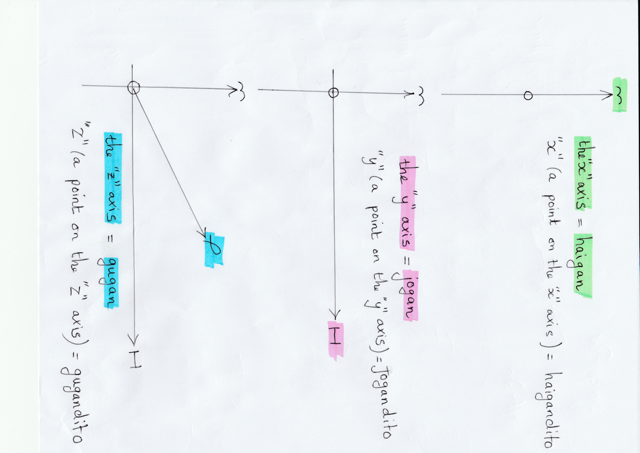 the "x" axis = haigan
"x" (a point on the "x" axis) = haigandito
the "y" axis = jogan
"y" (a point on the "y" axis) = Jogandito
the "z" axis = gugan
"Z" (a point on the "Z" axis) = gugandito